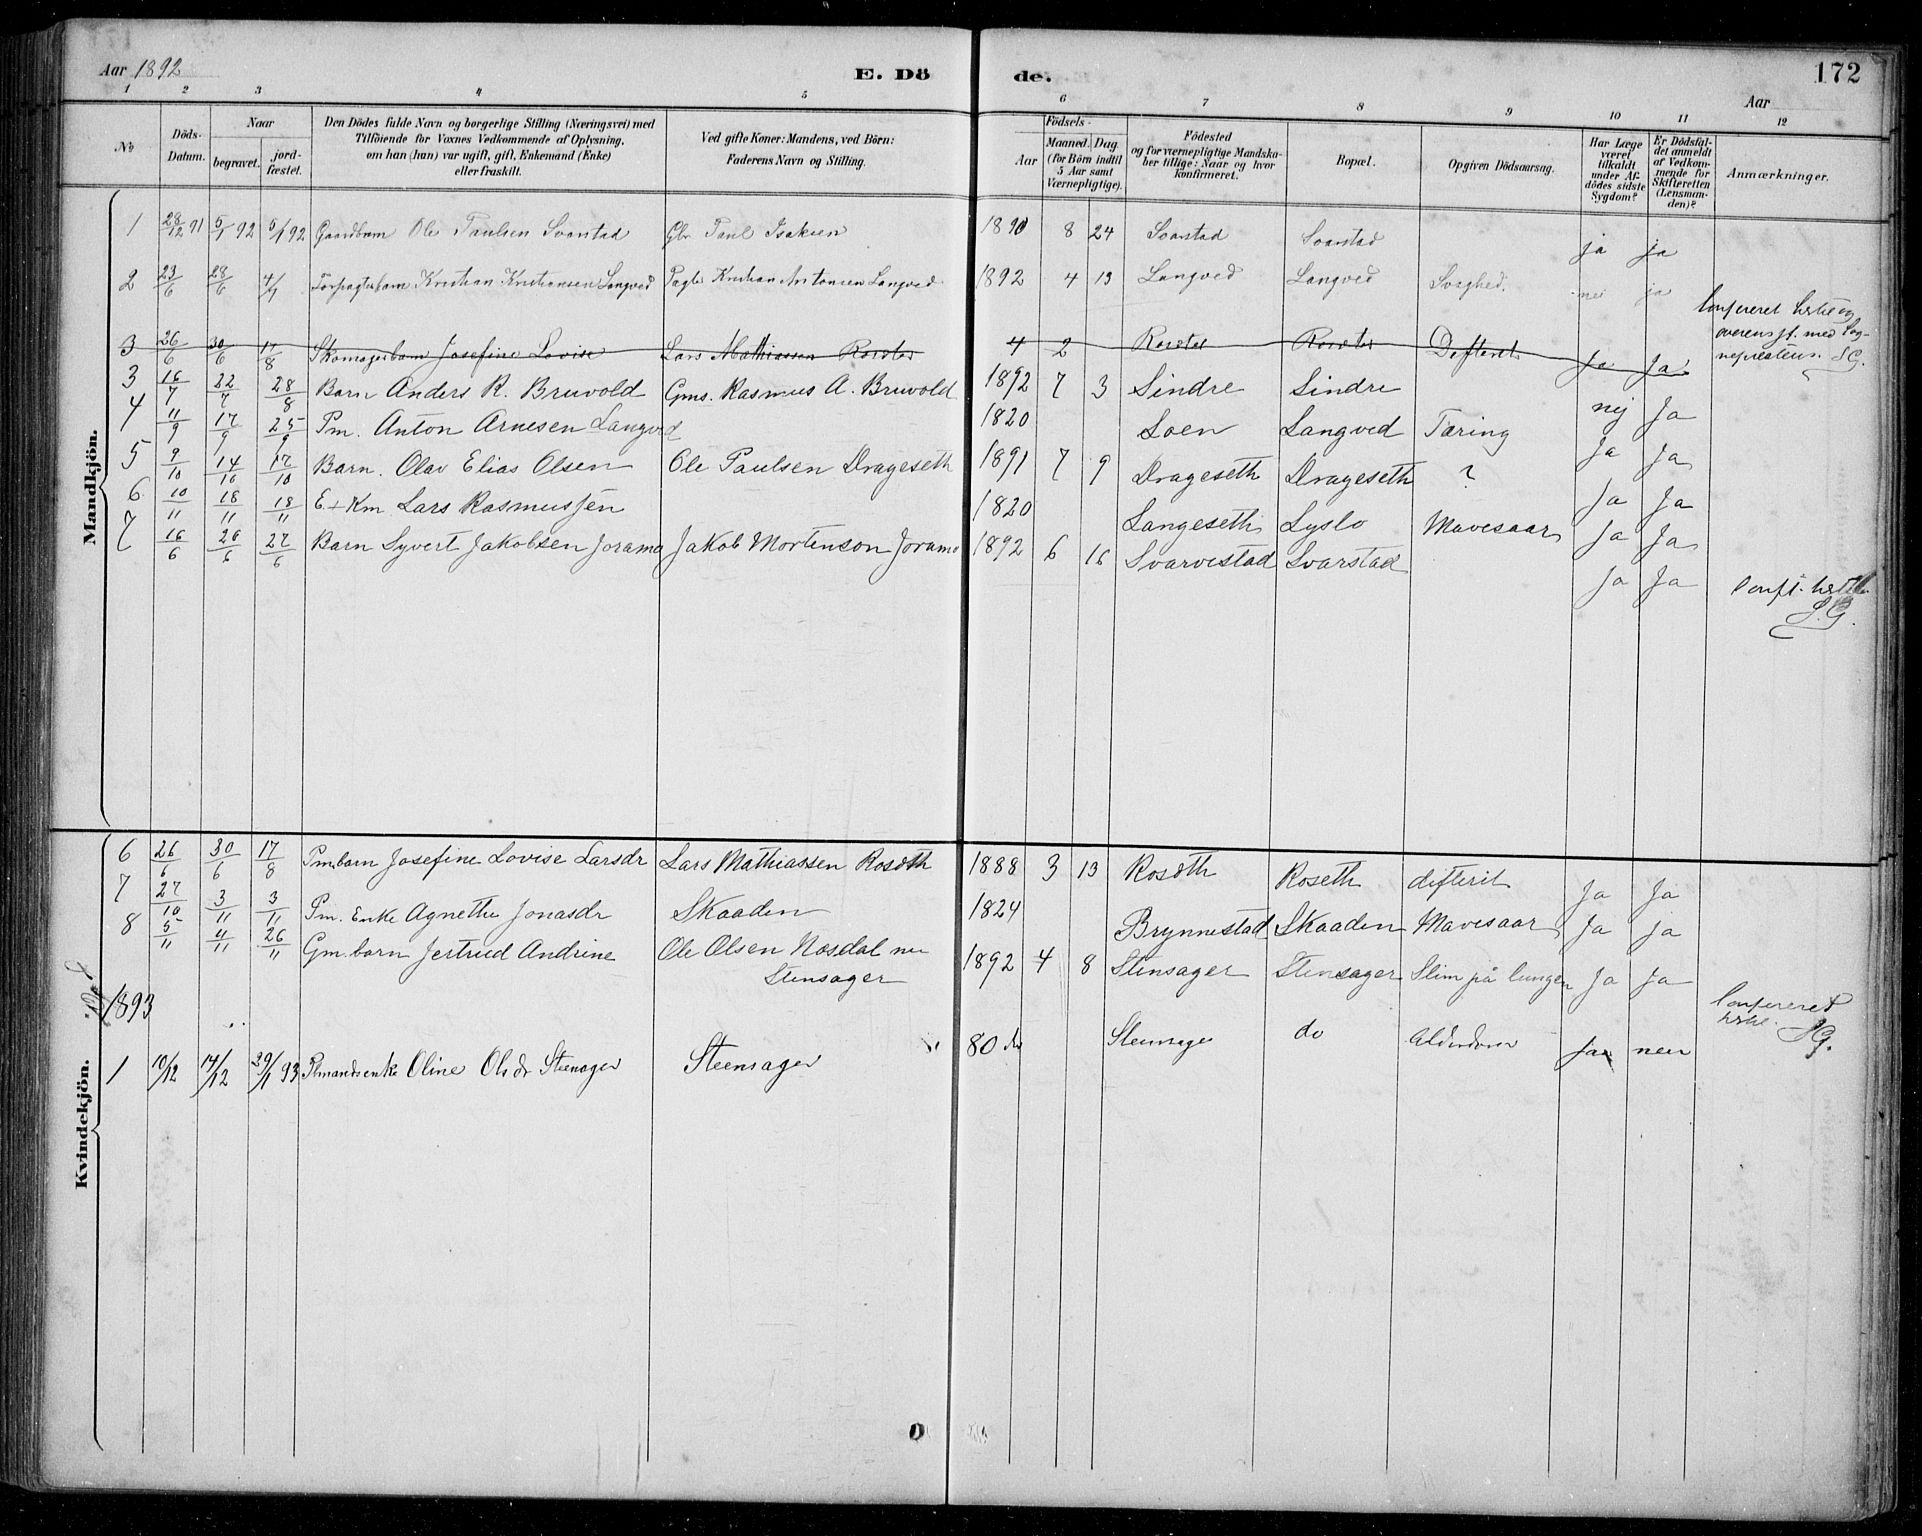 Aar 1892 E. Dö de. 172
Aar
1 2 3 4 5 6 7 8 9 10 11 12
№
Döds-Datum.
Naar
begravet.
jord-fæstet.
Den Dödes fulde Navn og borgerlige Stilling (Næringsvei) med
Tilföiende for Voxnes Vedkommende af Oplysning,
om han (hun) var ugift, gift, Enkemand (Enke)
eller fraskilt.
Ved gifte Koner: Mandens, ved Börn:
Faderens Navn og Stilling.
Födsels-
Aar
Maaned. Dag.
(for Börn indtil
5 Aar samt
Værnepligtige).
Födested
og for værnepligtige Mandska-
ber tillige: Naar og hvor
konfirmeret.
Bopæl.
Opgiven Dödsaarsag.
Har Læge
været
tilkaldt
under Af-
dödes sidste
Sygdom?
Er Dödsfal-
det anmeldt
af Vedkom-
mende for
Skifteretten
(Lensman-
den)?
Anmærkninger.
Mandkjön.
1 28/12 91 5/1 92 5/1 92 Gaardbarn Ole Paulsen Svarstad Gbr Paul Isaksen 1890 8 24 Svarstad Svarstad ja ja
2 23/6 28/6 4/7 Forpagterbarn Kristian Kristiansen Langved Pagter Kristian Antonsen Langved 1892 4 13 Langved Langved Svaghed. nei ja
3 26/6 30/6 17/8 Skomagerbarn Josefine Lovise Lars Mathiassen 4 2 Defterit Ja Ja
3 16/7 22/7 28/8 Barn Anders R. Bruvold Gms. Rasmus A. Bruvold 1892 7 3 Sindre Sindre nej Ja
4 11/9 17/9 25/9 Pm. Anton Arnesen Langved 1820 Loen Langved Tæring Ja Ja
5 9/10 14/10 17/10 Barn. Olav Elias Olsen Ole Paulsen Drageseth 1891 7 9 Drageseth Drageseth ? Ja Ja
6 10/11 18/11 18/11 E+Km Lars Rasmussen 1820 Langeseth Lyslo Mavesaar Ja Ja
7 16/6 26/6 27/6 Barn Syvert Jakobsen Joramo Jakob Mortenson Joramo 1892 6 16 Svarvestad Svarstad Ja Ja
overensst. med
S.G.
Kvindekjön.
6 26/6 30/6 17/8 Pm.barn Josefine Lovise Larsdr Lars Mathiassen Rosæth 1888 3 13 Rosæth Roseth defterit Ja Ja
7 27/10 3/11 3/11 Pm. Enke Agnethe Jonasdr Skaaden 1824 Brynnestad Skaaden Mavesaar Ja ja
8 5/11 4/11 26/11 Gm.barn Jertrud Andrine Ole Olsen Nosdal nu
Stensager 1892 4 8 Stensager Stensager Slim på lungen Ja Ja
1893
Confereret
SG.
1 10/12 17/12 29/1 93 Plmandsenke Oline Olsdr Steensager Steensager 80 Steensager do Alderdom Ja neu